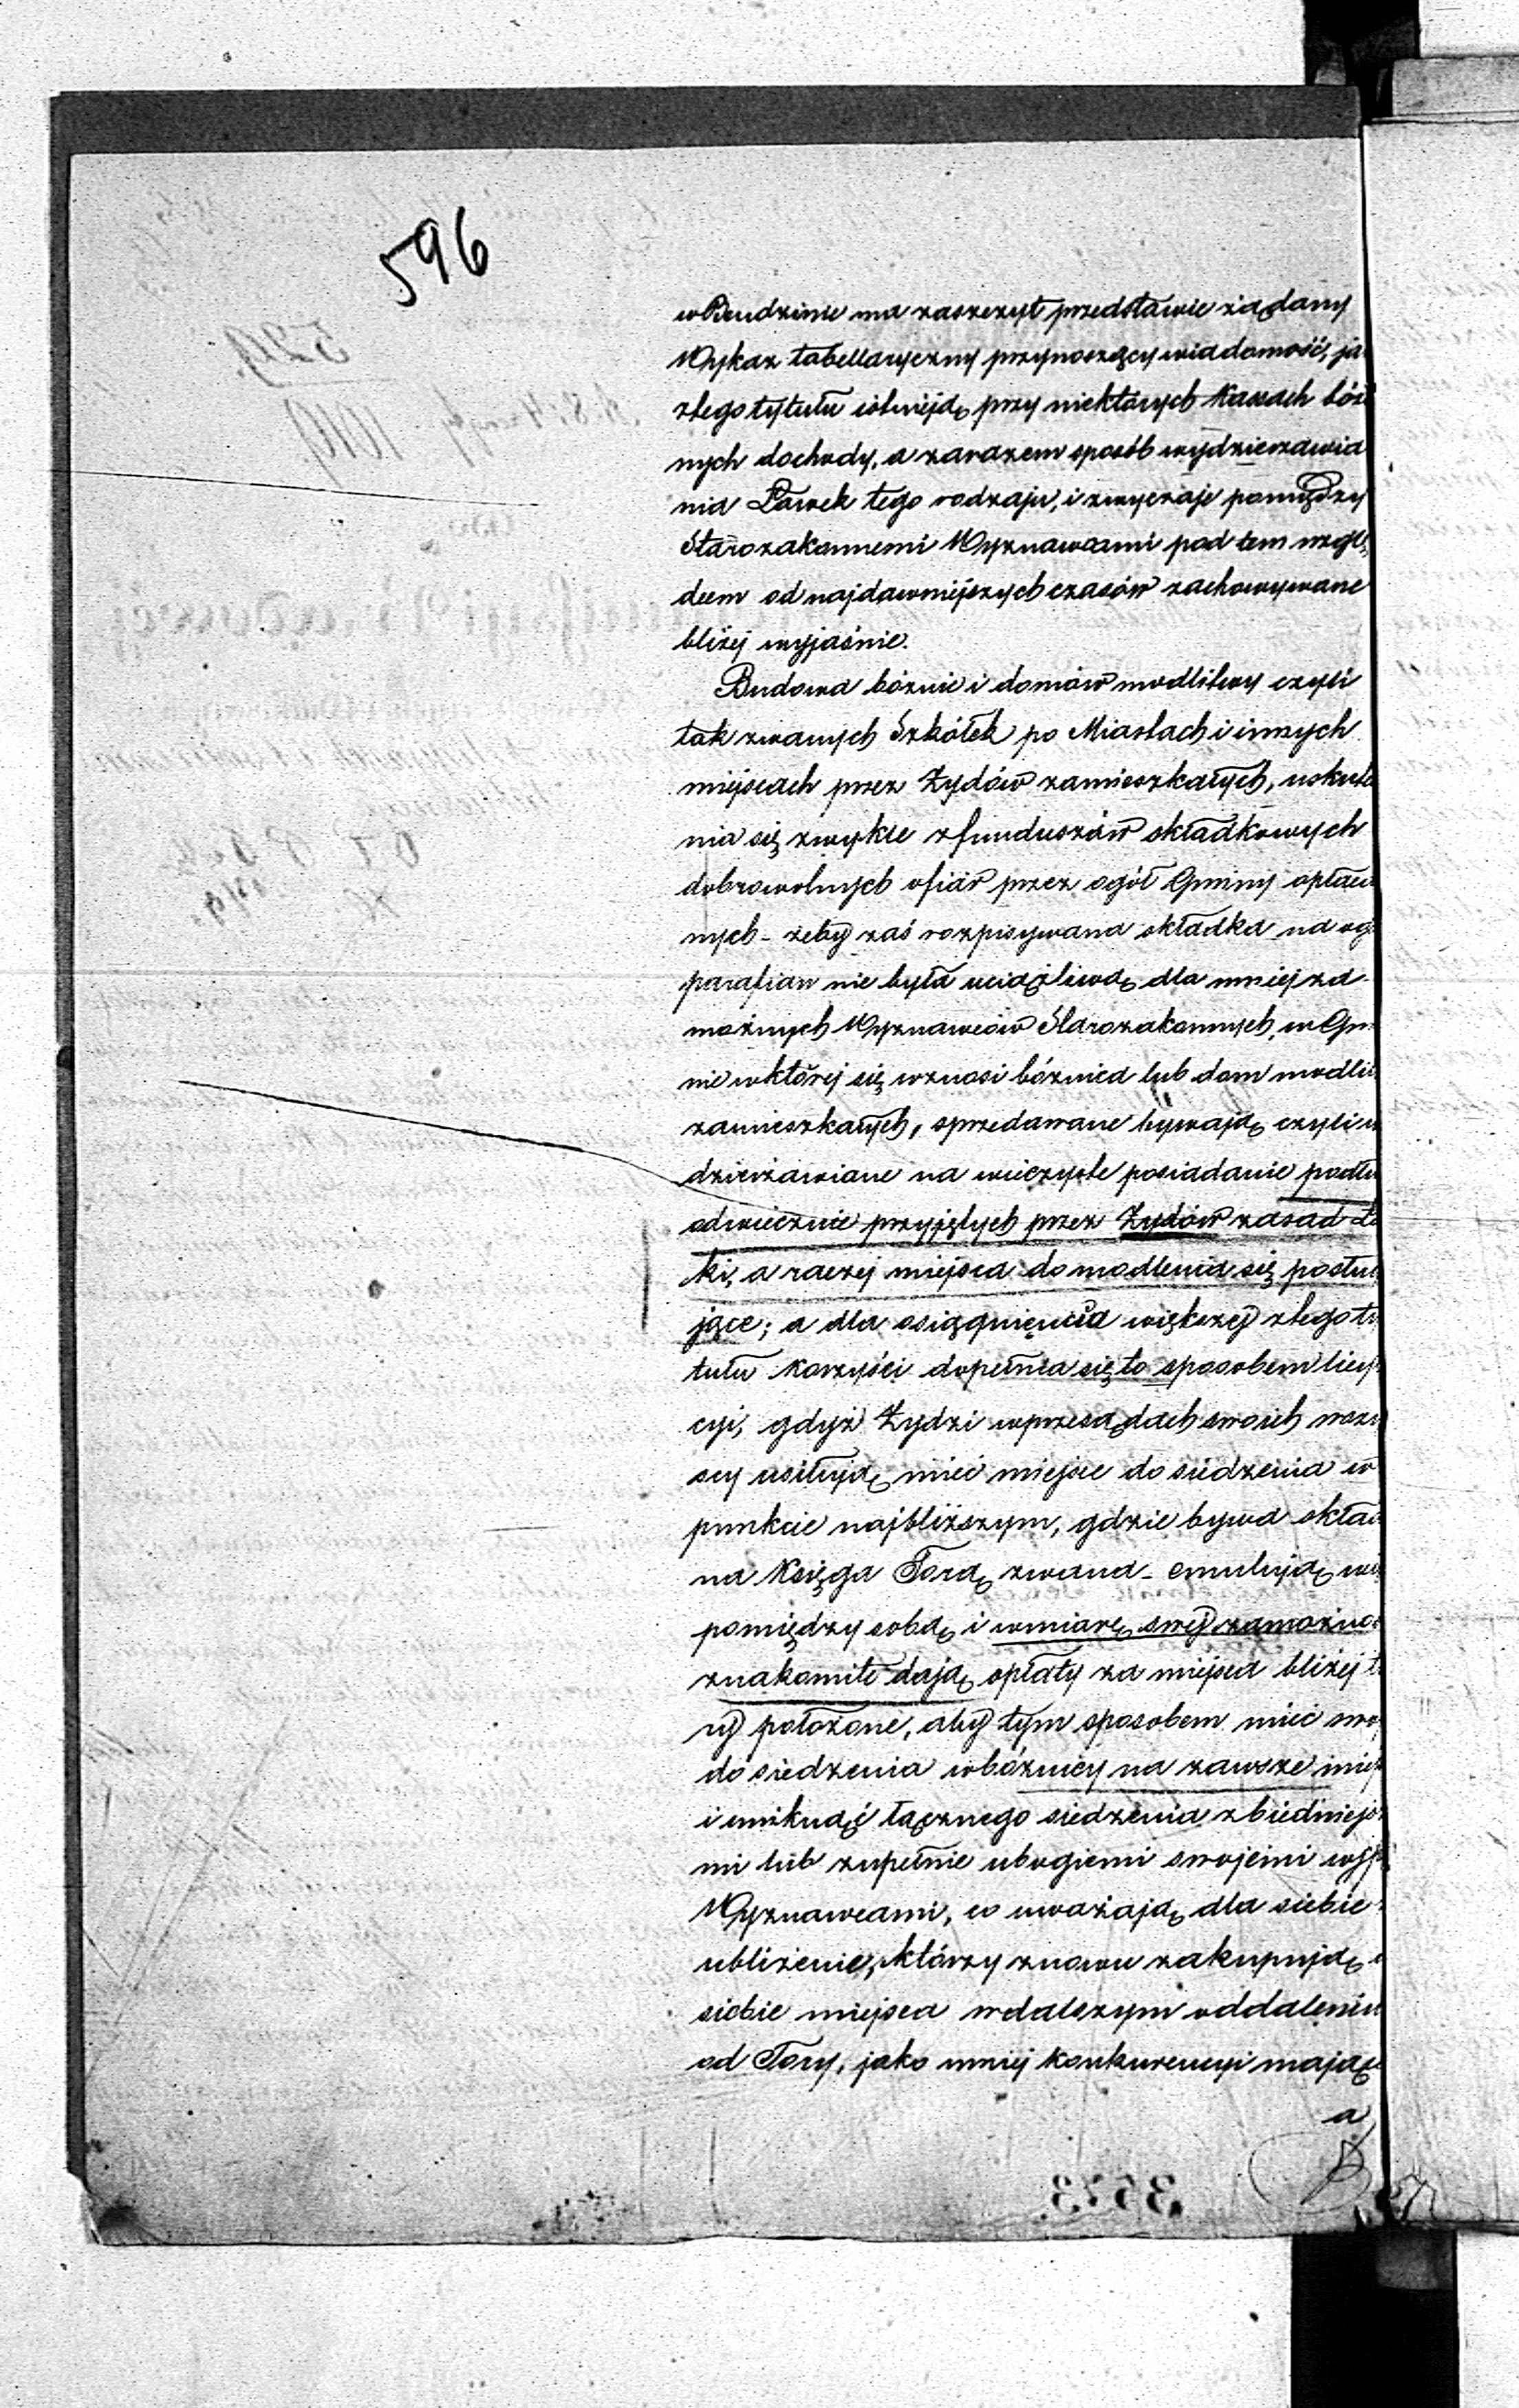 596
w Bendzinie ma zaszczyt przedstawić żądany
Wykaz tabellaryczny przynoszący wiadomość, ja
z tego tytułu istnieją przy niektórych Kassach bóż
nych dochody, a zarazem sposób wydzierzawia
nia Ławek tego rodzaju, i zwyczaje pomiędzy
Starozakonnemi Wyznawcami pod tem wzglę
dem od najdawniejszych czasów zachowywane
bliżej wyjaśnić.
Budowa bóżnic i domów modlitwy czyli
tak zwanych Szkółek po Miastach i innych
miejscach przez Żydów zamieszkałych, uskute
nia się zwykle z funduszów składkowych
dobrowolnych ofiar przez ogół Gminy opłac
nych - żeby zaś rozpisywana składka na og
parafian nie była uciążliwą dla mniej za
możnych Wyznawców Starozakonnych, w Gm
nie w której się wznosi bóżnica lub dom modli
zamieszkałych, sprzedawane bywają czyli w
dzierżawiane na wieczyste posiadanie podłu
odwiecznie przyjętych przez Żydów zasad ła
ki, a raczej miejsca do modlenia się postu
jące; a dla osiągnięcia większej z tego ty
tułu korzyści dopełnia się to sposobem licy
cyi, gdyż Żydzi w przesądach swoich wszy
scy usiłują mieć miejsce do siedzenia w
punkcie najbliższym, gdzie bywa skład
na Księga Torą zwana - emulują wi
pomiędzy sobą i w miarę swej zamożno
znakomite dają opłaty za miejsca bliżej t
ry położone, aby tym sposobem mieć swo
do siedzenia w bóżnicy na zawsze miej
i uniknąć łącznego siedzenia z biedniejs
mi lub zupełnie ubogiemi swojemi wsp
Wyznawcami, co uważają dla siebie
ubliżenie, którzy znowu zakupują
siebie miejsca w dalszym oddaleniu
od Tory, jako mniej konkurencyi mając
a